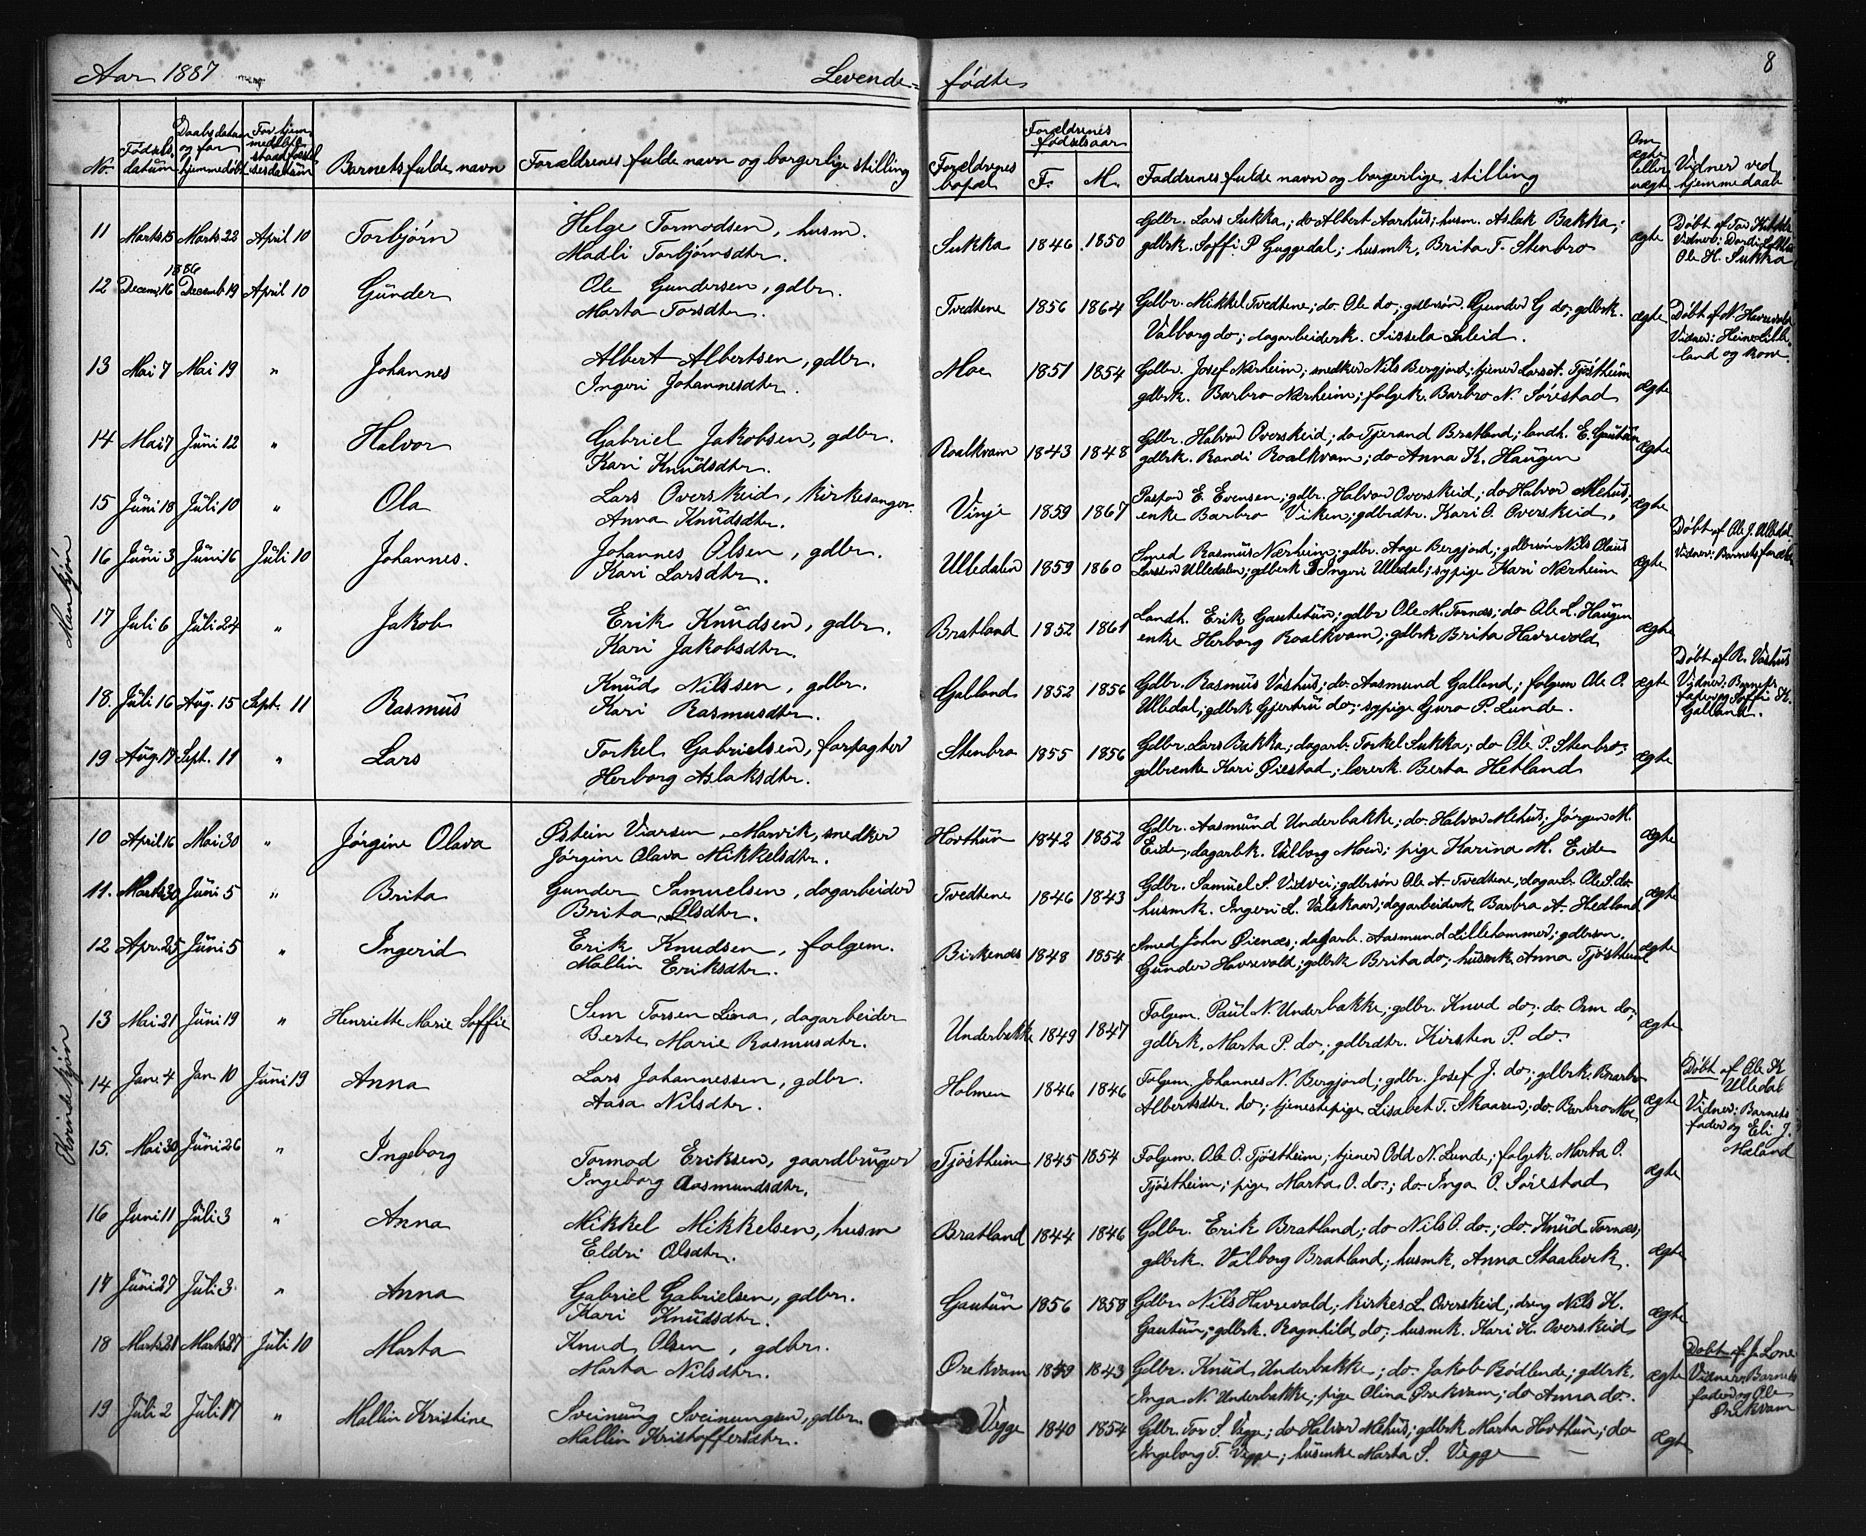 Aar 1887
Levende- fødte
8
No.
Fødsels-
datum
Daabsdatum
og for
hjemmedøbt
For hjem-
medøbte
stadfæstel-
sesdatum
Barnets fulde navn
Forældrenes fulde navn og borgerlige stilling
Forældrenes
bopæl
Forældrenes
fødselsaar
F. M.
Faddrenes fulde navn og borgerlige stilling
Om
ægte
eller
uægte
Vidner ved
hjemmedaab
Mankjøn
11 Marts 15 Marts 22 April 10 Torbjørn
Helge Tormodsen, husm.
Madli Torbjørnsdtr.
Sukka 1846 1850
Gdbr. Lars Sukka; do Albert Aarhus; husm. Aslak Bakka;
gdbrk. Soffi P. Guggedal; husmk. Brita T. Stenbro
ægte
Døbt af Tor
Vidner:
Ole H. Sukka
1886
12 Decemb 16 Decemb 19 April 10 Gunder
Ole Gundersen, gdbr.
Marta Torsdtr.
Tvedtene 1856 1864
Gdbr. Mikkel Tvedtene; do. Ole do; gdbrsøn Gunder G do; gdbrk.
Valborg do; dagarbeiderk. Sissela Saleid.
ægte
Døbt af N. Havrevold
Vidner:
land og kone.
13 Mai 7 Mai 19 " Johannes
Albert Albertsen, gdbr.
Ingeri Johannesdtr.
Moe 1851 1854
Gdbr. Josef Nærheim; snedker Nils Bergjord; tjener Lars A. Tjøstheim
gdbrk. Barbro Nærheim; folgek. Barbro N. Sørestad
ægte
14 Mai 7 Juni 12 " Halvor
Gabriel Jakobsen, gdbr.
Kari Knudsdtr.
Roalkvam 1843 1848
Gdbr. Halvor Overskeid; do Tjerand Bratland; landh. E. Gautun
gdbrk. Randi Roalkvam; do Anna K. Haugen
ægte
15 Juni 18 Juli 10 " Ola
Lars Overskeid, kirkesanger.
Anna Knudsdtr.
Vinje 1859 1867
E. Evensen; gdbr. Halvor Overskeid; do Halvor Mehus;
enke Barbro Viken; gdbrdtr. Kari O. Overskeid.
ægte
16 Juni 3 Juni 16 Juli 10 Johannes.
Johannes Olsen, gdbr.
Kari Larsdtr.
Ulledalen 1859 1860
Smed Rasmus Nærheim; gdbr. Aage Bergjord; gdbrsøn Nils Olaus
Larsen Ulledalen; gdbrk Ingeri Ulledal; sypige Kari Nærheim
ægte
Døbt af Ole J. Ulledal
Vidner: Barnets forældre
17 Juli 6 Juli 24 " Jakob
Erik Knudsen, gdbr.
Kari Jakobsdtr.
Bratland 1852 1861
Landh. Erik Gautetun; gdbr Ole M. Tornæs; do Ole L. Haugen
enke Herborg Roalkvam; gdbrk Brita Havrevold
ægte
18. Juli 16 Aug. 15 Sept. 11 Rasmus
Knud Nilssen, gdbr.
Kari Rasmusdtr.
Galland 1852 1856
Gdbr. Rasmus Vashus; do. Aasmund Galland; folgem Ole O.
Ulledal; gdbrk Gjertru do; sypige Guro P. Lunde.
ægte
Døbt af R. Vashus
Vidner: Barnets
fader og Soffi K.
Galland.
19 Aug. 17 Sept. 11 " Lars
Torkel Gabrielsen, forpagter
Herborg Aslaksdtr.
Stenbro 1855 1856
Gdbr. Lars Bakka; dagarb. Torkel Sukka; do Ole P. Stenbro;
gdbrenke Kari Øiestad; lærerk. Berta Hetland
ægte
Kvindekjøn
10 April 16 Mai 30 " Jørgine Olava
Østein Viarsen Marvik, snedker
Jørgine Olava Mikkelsdtr.
Hovthun 1842 1852
Gdbr. Aasmund Underbakke; do. Halvor Mehus; Jørgen M.
Eide; dagarbk. Valborg Moen; pige Karina M. Eide
ægte
11. Marts 30 Juni 5 " Brita
Gunder Samuelsen, dagarbeider
Brita Olsdtr.
Tvedtene 1846 1843
Gdbr. Samuel S. Vidvei; gdbrsøn Ole A. Tvedtene; dagarb. Ole S. do.
husmk. Ingeri L. Valskaar; dagarbeiderk Barbra A. Hedland
ægte
12 Apr. 25 Juni 5 " Ingerid
Erik Knudsen, folgem.
Mallin Eriksdtr.
Birkenes 1848 1854
Smed John Øienæs; dagarb. Aasmund Lillehammer; gdbrsøn.
Gunder Havrevold; gdbrk Brita do; husmk Anna Tjøstheim
ægte
13 Mai 21 Juni 19 " Henriette Marie Soffie
Sem Torsen Lina, dagarbeider
Berte Marie Rasmusdtr.
Underbakke 1849 1847
Folgem. Paul N. Underbakke; gdbr. Knud do; do. Orm do;
gdbrk. Marta P. do; gdbrdtr. Kirsten P. do.
ægte
14 Jan. 4 Jan. 10 Juni 19 Anna
Lars Johannessen, gdbr.
Aasa Nilsdtr.
Holmen 1846 1846
Folgem. Johannes N. Bergjord; gdbr. Josef J. do; gdbrk. Barbro
Albertsdtr. do; tjenestepige Lisabet T. Skaaren; do. Barbro Moe
ægte
Døbt af Ole K
Ulledal
Vidner: Barnets
fader og Eli J.
Mæland
15. Mai 30 Juni 26 " Ingeborg
Tormod Eriksen, gaardbruger
Ingeborg Aasmundsdtr.
Tjøstheim 1845 1854
Folgem. Ole O. Tjøstheim; tjener Odd N. Lunde; folgek. Marta O.
Tjøstheim; pige Marta O. do.; do. Inga O. Sørestad
ægte
16 Juni 11 Juli 3 " Anna
Mikkel Mikkelsen, husm
Eldri Olsdtr.
Bratland 1844 1846
Gdbr. Erik Bratland; do Nils O. do.; do. Knud Tornæs;
gdbrk. Valborg Bratland; husmk. Anna Staalverk.
ægte
17 Juni 27 Juli 3. " Anna
Gabriel Gabrielsen, gdbr.
Kari Knudsdtr.
Gautun 1856 1858
Gdbr Nils Havrevold; kirkes L. Overskeid; dreng Nils K.
Gautun; gdbrk. Ragnhild do; husmk. Kari K. Overskeid
ægte
18 Marts 21 Marts 27 Juli 10 Marta
Knud Olsen, gdbr.
Marta Nilsdtr.
Ørekvam 1839 1843
Gdbr. Knud Underbakke; do. Jakob Rødlende; gdbrk.
Inga N. Underbakke; pige Olina Ørekvam; do Anna do.
ægte
Døbt af J. Lone
Vidner: Barnets
fader og Ole
Ørekvam
19 Juli 2 Juli 17 " Mallin Kristine
Sveinung Sveinungsen, gdbr.
Mallin Kristoffersdtr.
Vegge 1840 1854
Gdbr. Tor S. Vegge; do Halvor Mehus; gdbrk Marta Hovthun; do
Ingeborg T. Vegge; husmke Marta S. Vegge
ægte